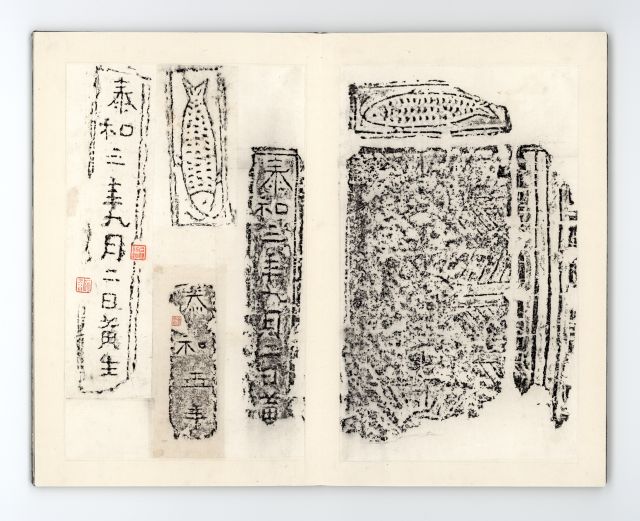 泰和三年九月二日黄
泰和五年
泰和三年九月二日黄生